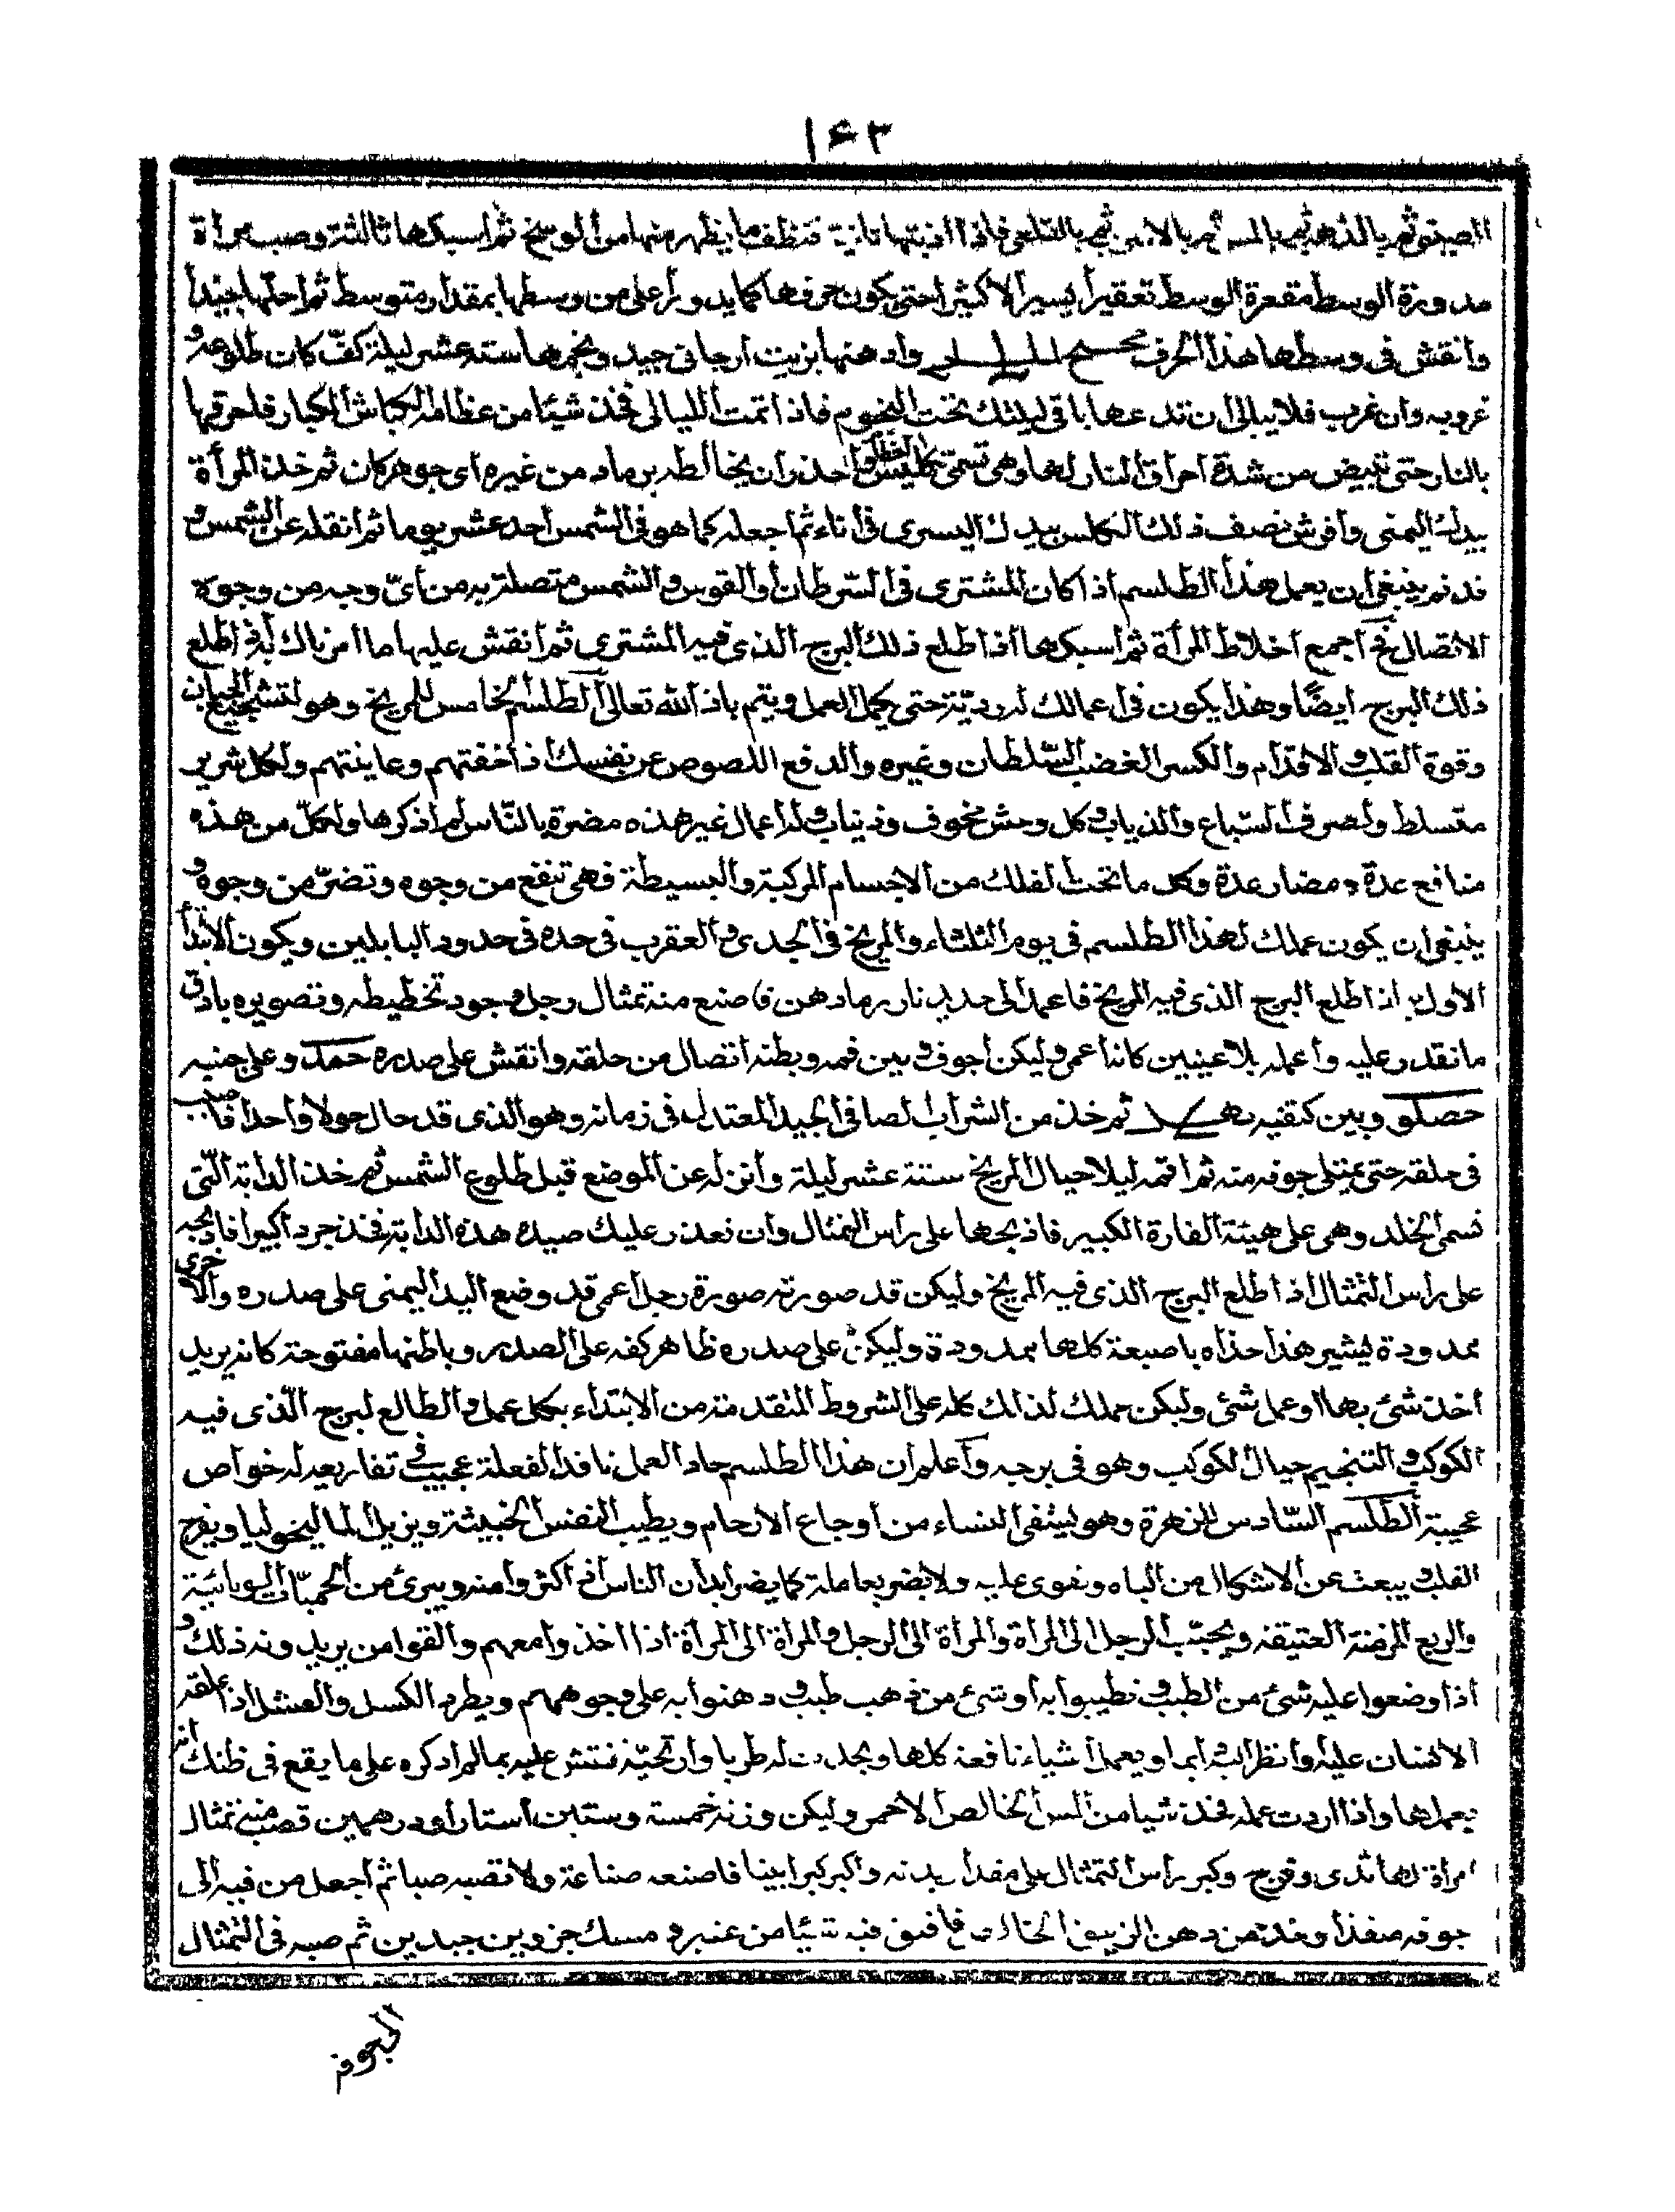 ۱۶۳
الصينى ثم بالذهب ثم بالمس ثم بالابن ثم بالقلعى فاذا اذبتها ثانية فنظف ما يظهر منها من الوسخ ثم اسبكها ثالثة وصب مرأة
مدورة الوسط مقعرة الوسط تعقيرا يسيرا لا كثيرا حتى يكون حرفها كما يدور أعلى من وسطها بمقدار متوسط ثم احلها جيدا
وانقش فى وسطها هذا الحرف وادهنها بزيت ارجانى جيد ونجمها ستة عشر ليلة كف كان طلوعه و
غروبه وان غرب فلا يبالى ان تدعها باقى ليلتك تحت النجوم فاذا تمت الليالى فخذ شيئا من عظام الكباش الكبار فاحرقها
بالنار حتى تبيض من شدة احراق النار لها وهى تسمى كليس العظام واحذر ان يخالطه برماد من غيره اى جوهر كان ثم خذ المرأة
بيدك اليمنى وافرش نصف ذلك الكلس بيدك اليسرى فى اناء ثم اجعله كما هو فى الشمس احد عشر يوما ثم انقله عن الشمس و
قد تم ينبغى ان يعمل هذا الطلسم اذا كان المشترى فى السرطان أو القوس و الشمس متصلة به من اىّ وجه من وجوه
الاتصال فخ اجمع اخلاط المرأة ثم اسبكها اذا طلع ذلك البرج الذى فيه المشترى ثم انقش عليها ما امرناك به اذا طلع
ذلك البرج ايضًا وهذا يكون فى اعمالك لدويّة حتى يكمل العمل ويتم باذ الله تعالى الطلسم الخامس للمريخ وهو لتشجيع الجبان
وقوة القلب و الاقدام والكسر الغضب السّلطان وغيره والدفع اللصوص عن نفسك اذا خفتهم وعاينتهم ولكل شرير
متسلط ولصرف السّباع والذياب و كل وحش مخوف وذنياب وله اعمال غير هذه مضرة بالنّاس لم اذكرها ولكلّ من هذه
منافع عدة ومضار عدة وكل ما تحت الفلك من الاجسام المركبة والبسيطة فهى تنفع من وجوه وتضرّ من وجوه و
ينبغى ان يكون عملك لهذا الطلسم فى يوم الثلثاء والمريخ فى الجدى و العقرب فى حده فى حدود البابليين ويكون الابتدأ
الأول به اذا طلع البرج الذى فيه المريخ فاعمد الى حديد نار برماد هن فاصنع منة تمثال رجل و جود تخطيطه وتصويره بادق
ما نقدر عليه واعمله بلا عينين كانه أعمى و ليكن أجوف و بين فمه وبطنه اتصال من حلقه وانقش على صدره حمد وعلى جنبيه
حصلو وبين كتفيه ثم خذ من الشراب الصافى الجيد المعتدل فى زمانه وهو الذى قد حال حولا واحدا فاصب
فى حلقه حتى يمتلى جوفه منه ثم اقمه ليلا حيال المريخ ستة عشر ليلة وأنزله عن الموضع قبل طلوع الشمس ثم خذ الدابة الّتى
تسمى الخلد وهى على هيئة الفارة الكبير فاذبحها على راس التمثال وان تعذر عليك صيده هذه الدابة فخذ جردا كبيرا فاذبحه
على راس التمثال اذا طلع البرج الذى فيه المريخ وليكن قد صورته صورة رجل أعمى قد وضع اليد اليمنى على صدره والاخرى
ممدودة يشير هذا حذاه باصبعة كلها ممدودة وليكن على صدره ظاهر كفه على الصدر وباطنها مفتوحة كانه يريد
أخذ شئ بها او عمل شئ وليكن عملك لذالك كله على الشروط المتقدمة من الابتداء بكل عمل و الطالع لبرج الّذى فيه
الكوكب و التنجيم حيال الكوكب وهو فى برجه واعلم ان هذا الطلسم حاد العمل نافذ الفعلة عجيب فى تفاريعه له خواص
عجيبة الطلسم السّادس للزهرة وهو ليشفى النساء من اوجاع الارحام ويطيب النفس الخبيثة ويزيل المالينخوليا ويفرح
القلب و يبعث عن الاشكال من الباه ويقوى عليه ولا يضر بعامله كما يضر ابدان الناس اذا اكثروا منه ويبرئ من الحميّات اليوبائيّة
والربع المزمنة العتيقه و يحبّب الرجل الى المرأة والمرأة الى الرجل و المرأة الى المرأة اذا اخذوا معهم والقوا من يريدونه ذلك و
اذا وضعوا عليه شئ من الطيب و تطيبوا به أو شئ من ذهب طيب و دهنوا به على وجوههم ويطرد الكسل والفشل اذا علقه
الانسان عليه وانظر اليه ايما ويعمل اشياء نافعة كلها ويجدد له طربا وأرتحيّة فتش عليه بما لم اذكره على ما يقع فى ظنك انه
يعملها واذا اردت عمله فخذ شيئا من المس الخالص الاحمر وليكن وزنه خمسة وستين استارا و درهمين فصب منه تمثال
امراة لها ثدى وفرج وكبر راس التمثال على مقدار بدنه واكبر كبرا بينا فاصنعه صناعة ولا تصبه صبا ثم أجعل من فيه الى
جوفه منفذا وخذ من دهن الزيبق الخالص فافتق فيه شيئا من عنبر و مسك جزوين جيدين ثم صبه فى التمثال
المجوف